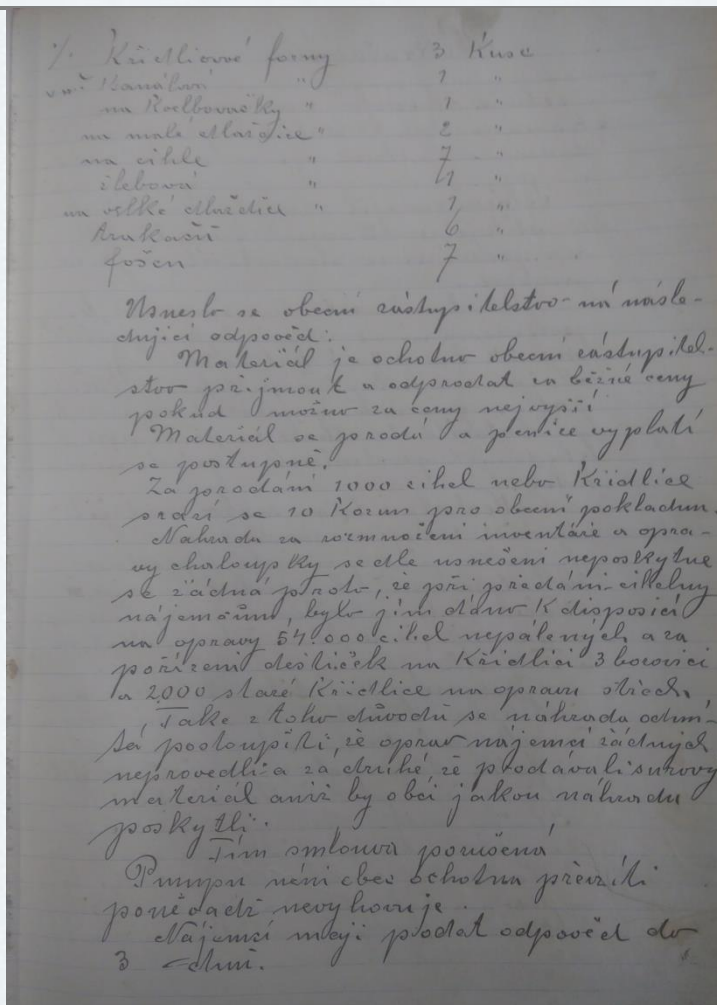 Křidlicové formy 3 Kuse
Kanálová " 1 "
na Koelbovačky " 1 "
na malé dlaždice " 2 "
na cihle " 7 "
žlebová " 4 "
na velké dlaždice " 1 "
Arakašů 6 "
fošen 7 "
Usneslo se obecní zástupitelstvo ná násle-
dující odpověď:
Materiál je ochotno obecní zástupitel-
stvo přijmout a odprodat za běžné ceny
pokud možno za ceny nejvyšší
Materiál se prodá a peníze vyplatí
se postupně.
Za prodání 1000 cihel nebo Křidlice
srazí se 10 Korun pro obecní pokladnu.
Nahrada za rozmnožení inventáře a opra-
vy chaloupky se dle usnešení neposkytne
se žádná proto, že při předání cihelny
nájemcům, bylo jím dáno K disposici
na opravy 54.000 cihel nepálených a za
pořízení destiček na Křidlici 3 borovici
a 2000 staré Křidlice na opravu střech,
Take z toho důvodů se náhrada odmí-
tá postoupiti, že oprav nájemci žádných
neprovedli a za druhé, že prodávali surový
materiál aniž by obci jakou náhradu
poskytli.
Tím smlouva porušená
Pumpu není obec ochotna převziti
poněvadž nevyhovuje.
Nájemci mají podat odpověď do
3 dnů.